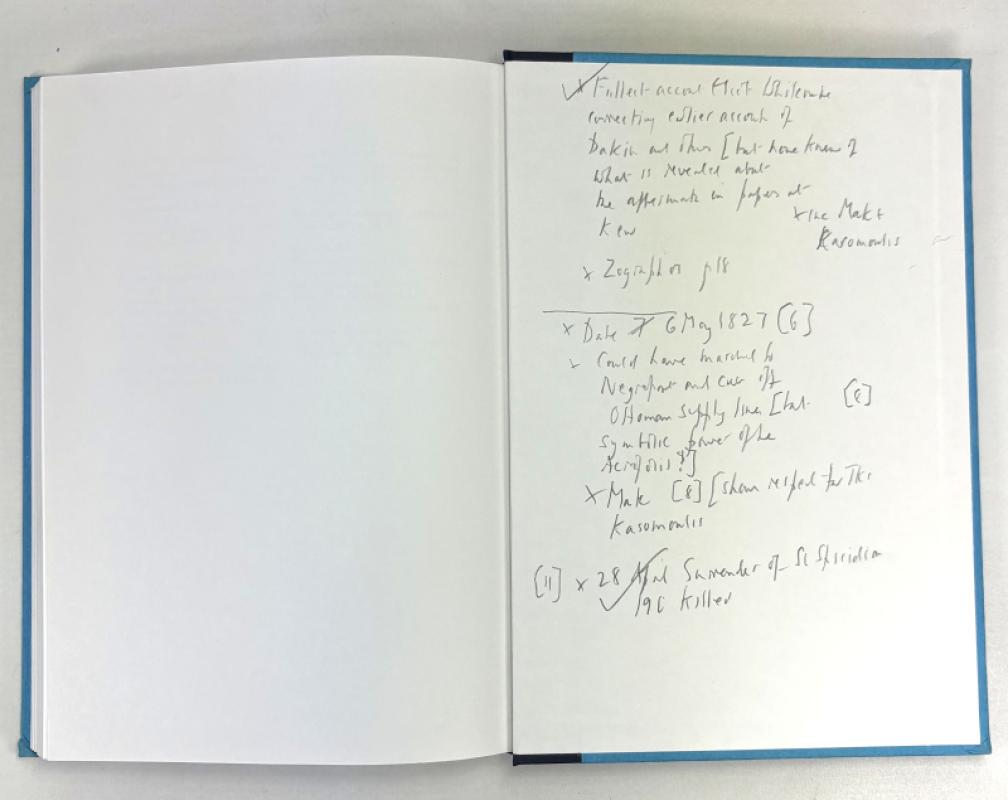 x Fullest account that Whitcombe
correcting earlier account of
Dakin and others [but none knew of
what is revealed about
the aftermath in papers at
Kew
x Make
Kasomoulis
x Zographos p18
x Date 6 May 1827 [6]
Could have marched to
Negropont and cut off
Ottoman supply lines [but [6]
symbolic power of the
Acropolis?]
x Make [8] [shows respect for
Kasomoulis
[11] x 28 April Surrender of St Spiridion
Killed